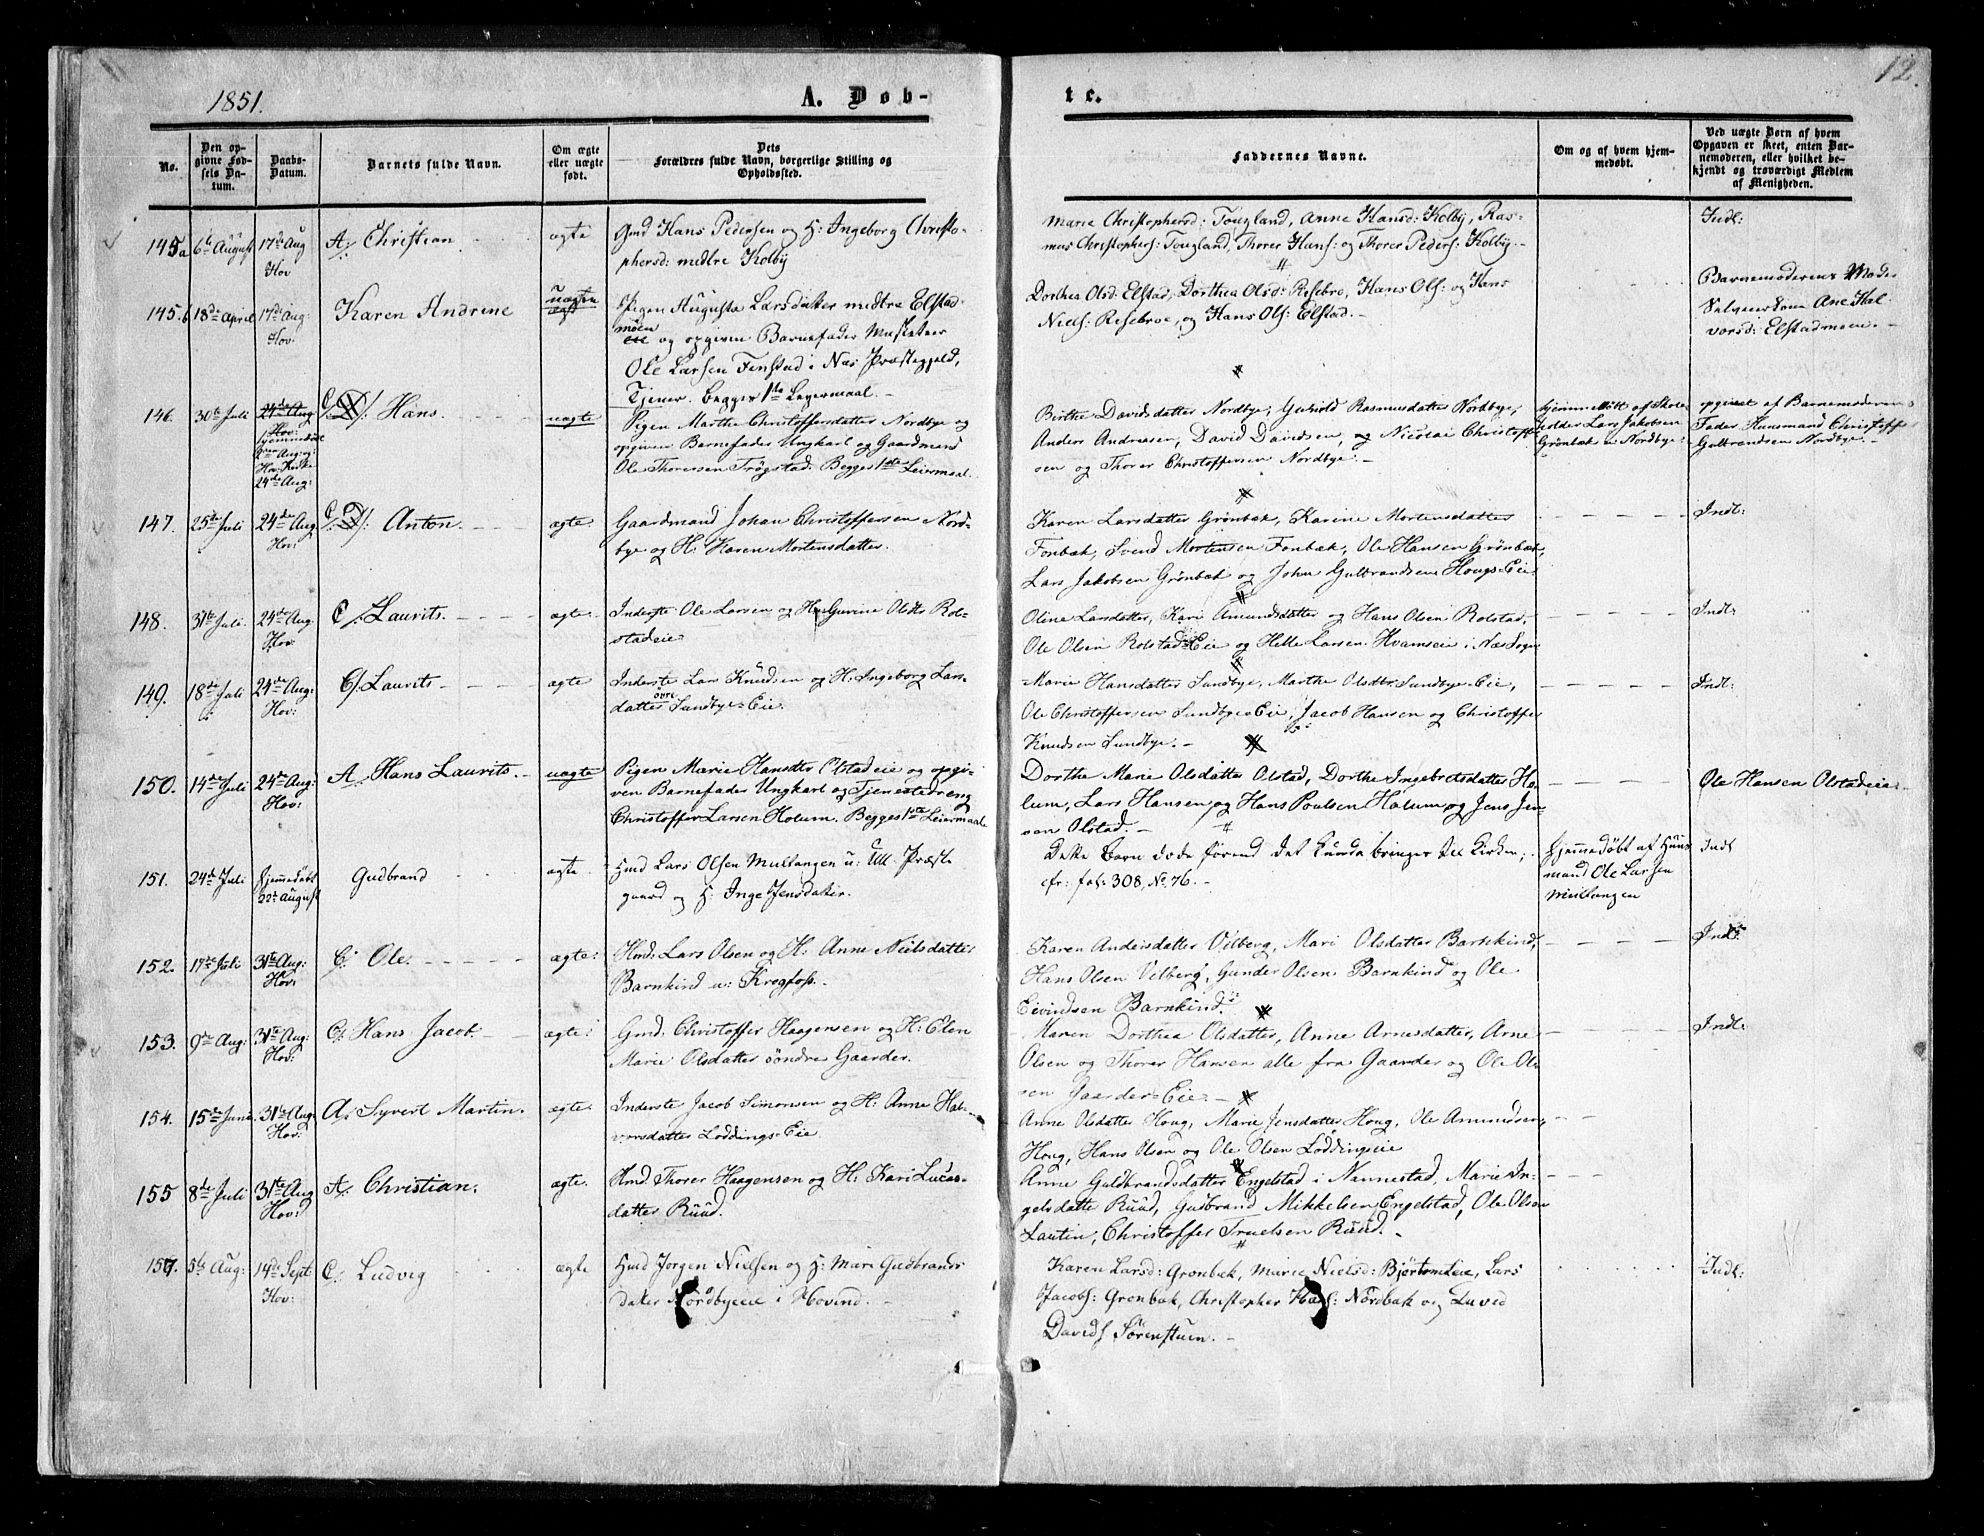 1851.
A. Døb-
te.
12.
No.
Den op-
givne Fød-
sels Da-
tum.
Daabs-
Datum.
Barnets fulde Navn.
Om ægte
eller uægte
født.
Dets
Forældres fulde Navn, borgerlige Stilling og
Opholdssted.
Faddernes Navne.
Om og af hvem hjem-
medøbt.
Ved uægte Børn af hvem
Opgaven er skeet, enten Bar-
nemoderen, eller hvilket be-
kjendt og troværdigt Medlem
af Menigheden.
145a 6te August 17de Aug Hov A/: Christian ægte
Gmd Hans Pedersen og H: Ingeborg Christo-
phersd: medtre Kolby
Marie Christophersd: Tougland, Anne Hansd: Kolby, Ras-
mus Christophers: Tougland, Thorer Hans: og Thorer Peders: Kolby.
Indl:
145.b 18de April 17de Aug: Hov: Karen Andrine uægte
Pigen Augusta Larsdatter medtre Elstad-
moen og opgiven Barnefader Musketeer
Ole Larsen Fenstad i Næs Præstegjeld,
Tjener. Begges 1ste Leyermaal.
Dorthea Olsd: Elstad, Dorthea Olsd: Risebro, Hans Ols: og Hans
Niels: Risebroe, og Hans Ols: Elstad.
Barnemoderens Moder
Ane Hal-
vorsd: Elstadmoen.
146. 30te Juli 24de Aug Hov: hjemmedøbt Aug: og Hov: Kirke 24de Aug: C/: Hans. uægte
Pigen Marthe Christoffersdatter Nordbye og
opgiven Barnefader Ungkarl og Gaardmand
Ole Thoresen Trøgstad: Begges 1ste Leiermaal.
Birthe Davidsdatter Nordbye, Gunild Rasmusdatter Nordbye,
Anders Andreasen, David Davidsen, og Nicolai Christoffer-
sen og Thorer Christoffersen Nordbye.
hjemmedøbt af Skole-
holder Lars Jakobsen
Grønbæk u: Nordbye.
opgivet af Barnemoderens
Fader Huusmand Christoffer
Gulbrandsen Nordbye.
147. 25de Juli 24de Aug Hov: C/: Anton. ægte
Gaardmand Johan Christoffersen Nord-
bye og H: Karen Mortensdatter.
Karen Larsdatter Grønbæk, Karine Mortensdatter
Fonbæk, Svend Mortensen Fonbæk, Ole Hansen Grønbæk,
Lars Jakobsen Grønbæk og John Gulbrandsen Hougs-Eie
Indl:
148. 31te Juli 24de Aug. Hov: C/: Laurits. ægte.
Inderste Ole Larsen og H: Gurine Olsdtr Rol-
stadeie
Oline Larsdatter, Kari Amundsdatter og Hans Olsen Rolstad.
Ole Olsen Rolstad-Eie og Helle Larsen Kvamseie i Næs Sogn
Indl:
149. 18de Juli 24de Aug: Hov: C/: Laurits ægte
Inderste Lars Knudsen og H: Ingeborg Lars-
datter øvre Sundbye-Eie.
Marie Hansdatter Sundbye, Marthe Olsdtr Sundbye-Eie,
Ole Christoffersen Sundbye-Eie, Jacob Hansen og Christoffer
Knudsen Sundbye.
Indl:
150. 14de Juli 24de Aug: Hov: A/: Hans Laurits. uægte
Pigen Marie Hansdtr Olstadeie og opgi-
ven Barnefader Ungkarl og Tjenestedreng
Christoffer Larsen Holum. Begges 1ste Leiermaal
Dorthe Marie Olsdatter Olstad, Dorthe Ingebretsdatter Ho-
lum, Lars Hansen og Hans Poulsen Holum og Jens Jen-
sen Olstad.
Ole Hansen Olstadeie
151. 24de Juli hjemmedøbt 22de August Gudbrand ægte
Hmd Lars Olsen Mullangen u: Ull. Præste-
gaard og H: Inge Jensdatter.
Dette Barn døde førend det kunde bringes til Kirken;
cfr: fol: 308, No. 76.
hjemmedøbt af Huus-
mand Ole Larsen
Mullangen
Indl
152. 17de Juli 31te Aug: Hov: C/: Ole. ægte:
Hmd: Lars Olsen og H: Anne Nielsdatter
Barnkind u: Krogfoss.
Karen Andersdatter Vilberg, Mari Olsdatter Barnkind,
Hans Olsen Vilberg, Gunder Olsen Barnkind og Ole
Eivindsen Barnkind.
Indl:
153. 9de Aug: 31te Aug: Hov: C/: Hans Jacob. ægte
Gmd: Christoffer Haagensen og H: Elen
Marie Olsdatter søndre Gaarder.
Maren Dorthea Olsdatter, Anne Arnesdatter, Arne
Olsen og Thorer Hansen alle fra Gaarder og Ole Ol-
sen Gaarder-Eie.
Indl:
154. 15de Juni 31te Aug: Hov: A/: Syvert Martin. ægte.
Inderste Jacob Simonsen og H: Anne Hal-
vorsdatter Loddings-Eie
Anne Olsdatter Houg, Marie Jensdatter Houg, Ole Amundsen,
Houg, Hans Olsen og Ole Olsen Loddingseie
155 8de Juli 31te Aug Hov: A/: Christian. ægte.
Hmd: Thorer Haagensen og H: Kari Lucas-
datter Ruud.
Anne Guldbrandsdatter Engelstad i Nannestad, Marie In-
gelsdatter Ruud, Gudbrand Mikkelsen Engelstad, Ole Olsen
Lautin, Christoffer Truelsen Ruud.
157. 5te Aug: 14de Sept: Hov: C/: Ludvig ægte
Hmd Jørgen Nielsen og H: Mari Gudbrands-
datter Nordbyeeie i Hovind.
Karen Larsd: Grønbæk, Marie Nielsd: Bjørtomteie, Lars
Jacobs: Grønbæk, Christopher Hans: Nordbæk og David
Davids Sørenstuen.
Indl: